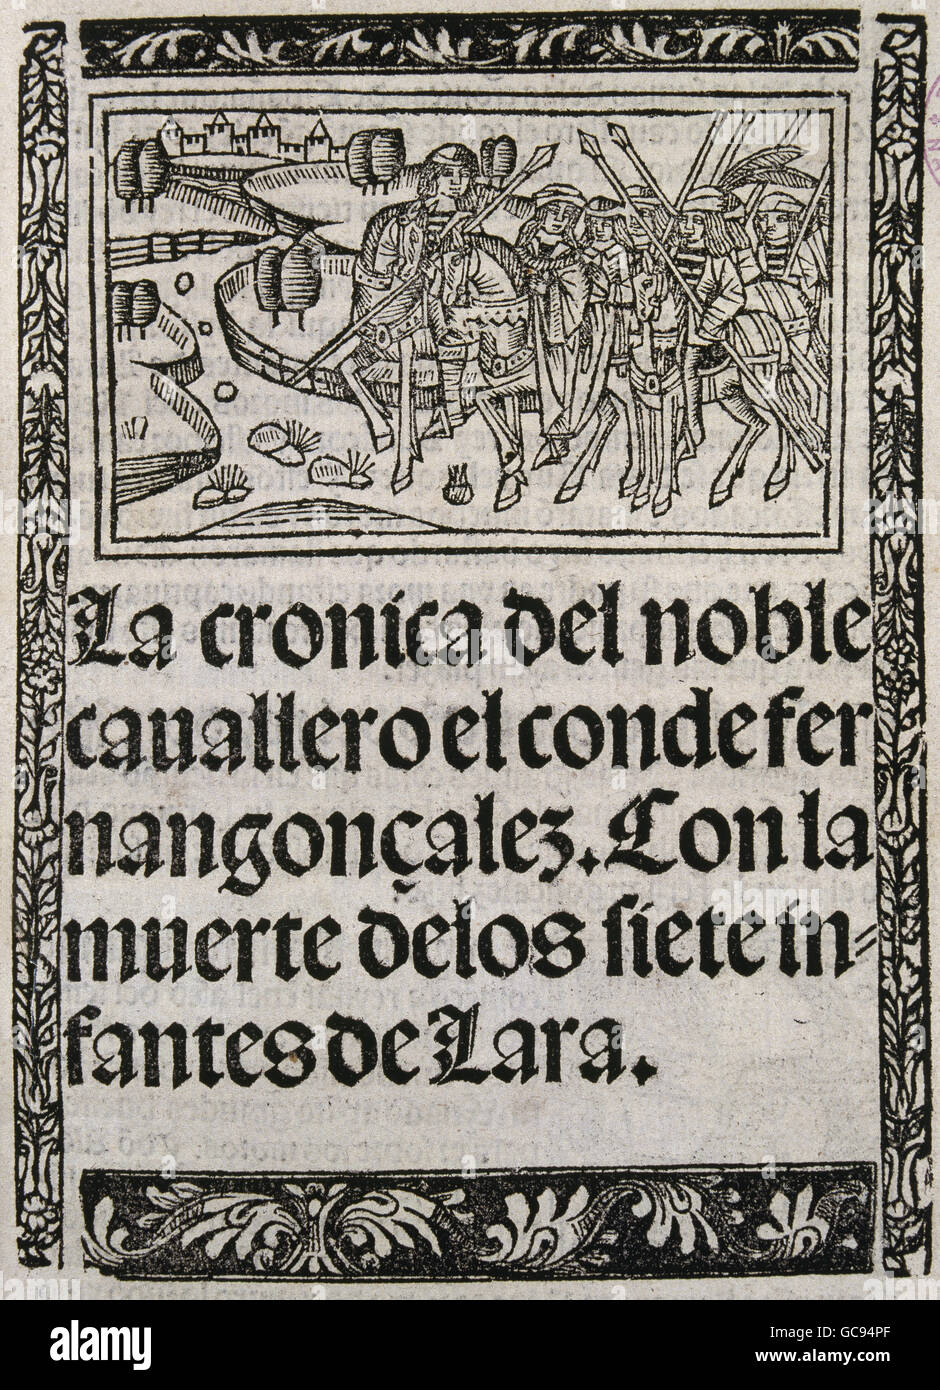 La cronica del noble
cauallero el conde fer
nangonçalez. Con la
muerte delos siete in=
fantes de Lara.
alamy stock photo
GC94PF
www.alamy.com